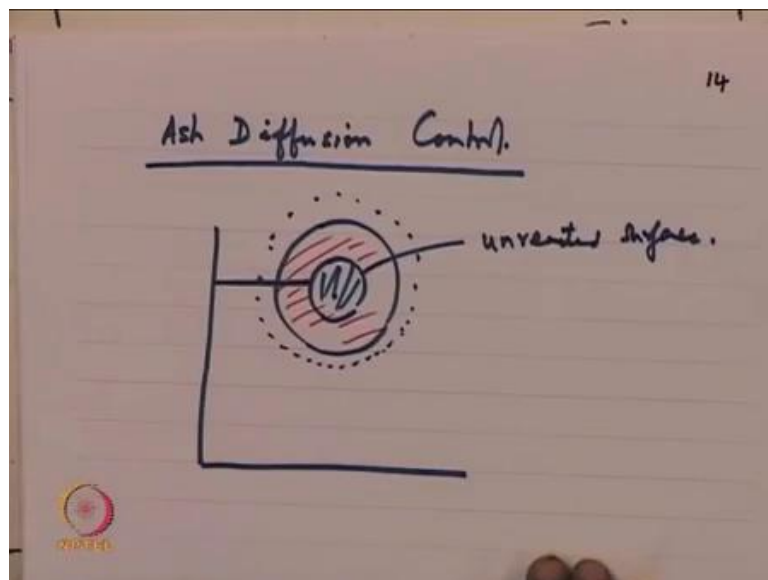 14
Ash Diffusion Control.
unreacted surface.
NPTEL